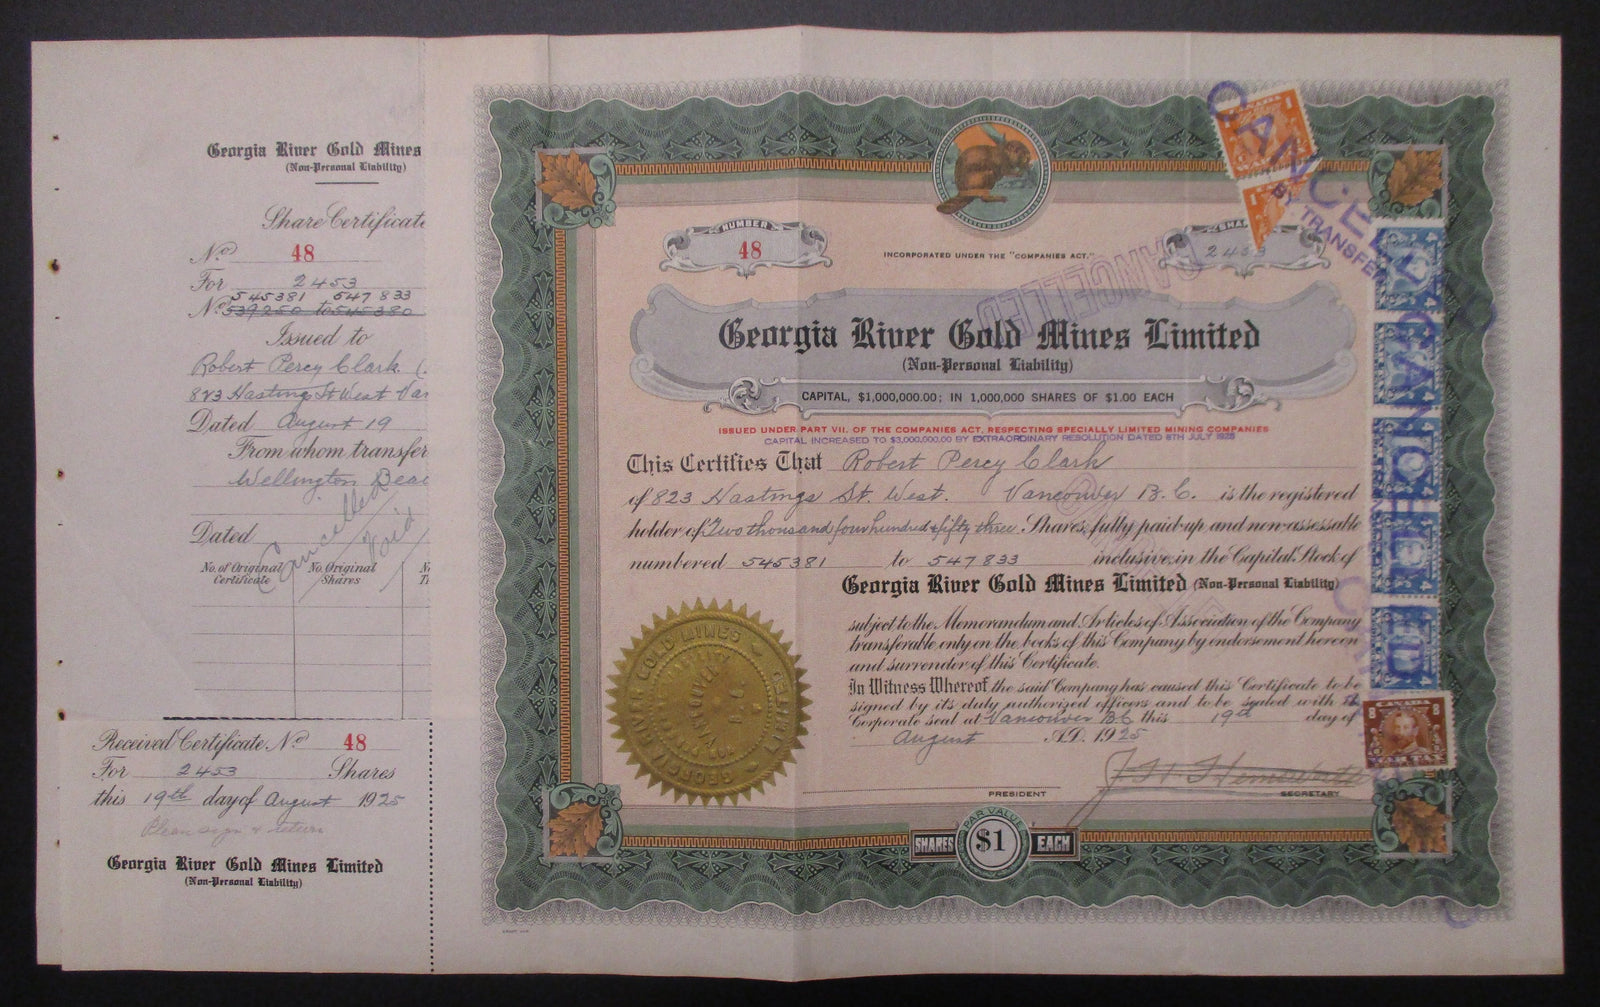 Georgia River Gold Mines
(Non-Personal Liability)
Share Certificate
No. 48
For 2453
545381 547833
No. 539250 to 545380
Issued to
Robert Percy Clark
823 Hastings St West Van
Dated August 19
From whom transfer
Wellington Beac
Cancelled
Void
Dated
No. of Original Certificate
No. Original Shares
Received Certificate No. 48
For 2453 Shares
this 19th day of August 1925
Please sign & return
Georgia River Gold Mines Limited
(Non-Personal Liability)
NUMBER
48
INCORPORATED UNDER THE "COMPANIES ACT."
SHA
2453
CANCELLED
Georgia River Gold Mines Limited
(Non-Personal Liability)
CAPITAL, $1,000,000.00; IN 1,000,000 SHARES OF $1.00 EACH
ISSUED UNDER PART VII. OF THE COMPANIES ACT, RESPECTING SPECIALLY LIMITED MINING COMPANIES
CAPITAL INCREASED TO $3,000,000.00 BY EXTRAORDINARY RESOLUTION DATED 8TH JULY 1925
This Certifies That Robert Percy Clark
of 823 Hastings St. West. Vancouver B.C. is the registered
holder of Two thousand four hundred & fifty three. Shares, fully paid up and non-assessable
numbered 545381 to 547833 inclusive, in the Capital Stock of
Georgia River Gold Mines Limited (Non-Personal Liability)
subject to the Memorandum and Articles of Association of the Company
transferable only on the books of this Company by endorsement hereon
and surrender of this Certificate.
In Witness Whereof the said Company has caused this Certificate to be
signed by its duly authorized officers and to be sealed with its
Corporate seal at Vancouver B.C. this 19th day of
August A.D. 1925
PRESIDENT
SECRETARY
GEORGIA RIVER GOLD MINES LIMITED
VANCOUVER B. C.
PAR VALUE
SHARES $1 EACH
CANCELLED
BY TRANSFER
CANCELLED
CANADA
CANADA